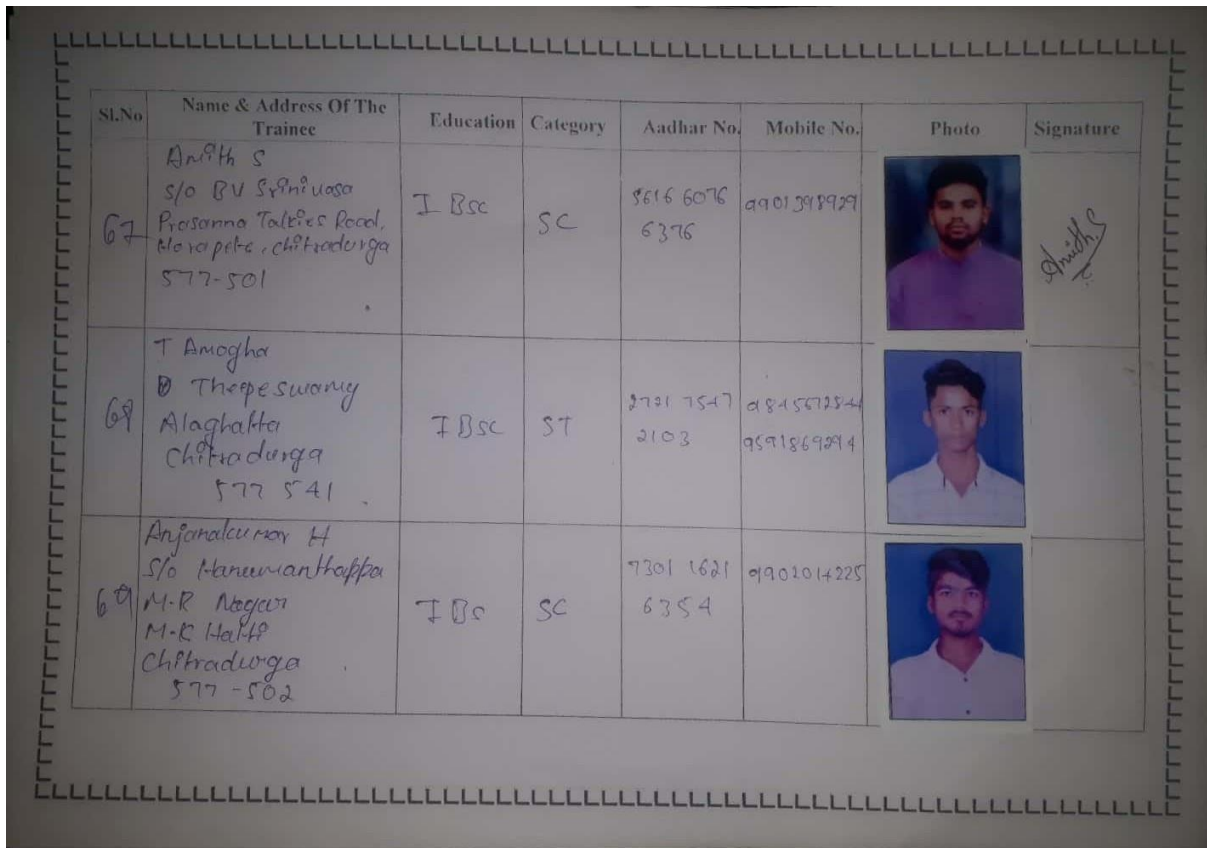 Sl.No
Name & Address Of The
Trainee
Education
Category
Aadhar No.
Mobile No.
Photo
Signature
67
Amith S
S/o BV Srinivasa
Prasanna Talkies Road,
Chitradurga
577-501
I BSc
SC
5616 6076
6376
9901398929
Amith S
68
T Amogha
Theepeswamy
Alaghatta
Chitradurga
577 541
I BSC
ST
2721 7547
2103
9591869294
69
Anjanakumar H
S/o Hanumanthappa
M-R Nagar
M-K Hatti
Chitradurga
577-502
I BS
SC
7301 1621
6354
9902014225